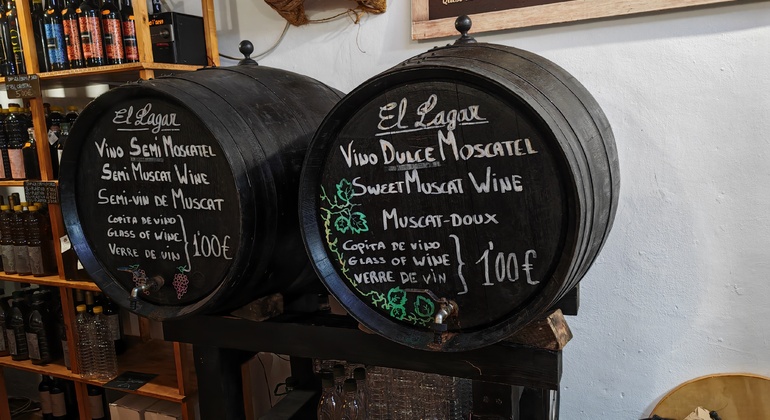 El Lagar
Vino Semi Moscatel
Semi Muscat Wine
Semi-vin de Muscat
Copita de vino
Glass of wine
Verre de vin
1'00€
El Lagar
Vino Dulce Moscatel
Sweet Muscat Wine
Muscat-Doux
Copita de vino
Glass of wine
Verre de vin
1'00€